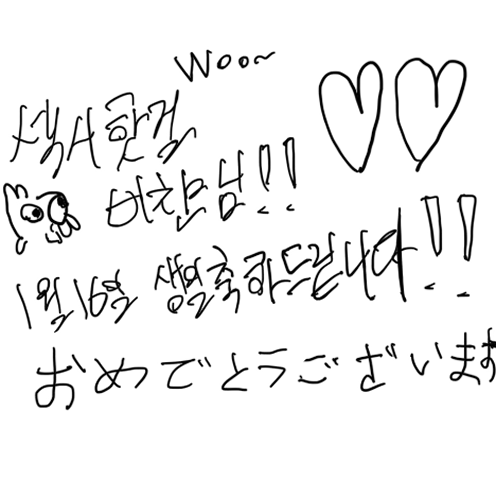 Woo~
섹시핫걸
비찬모님!!
1월16일 생일축하드립니다!!
おめでとうございます